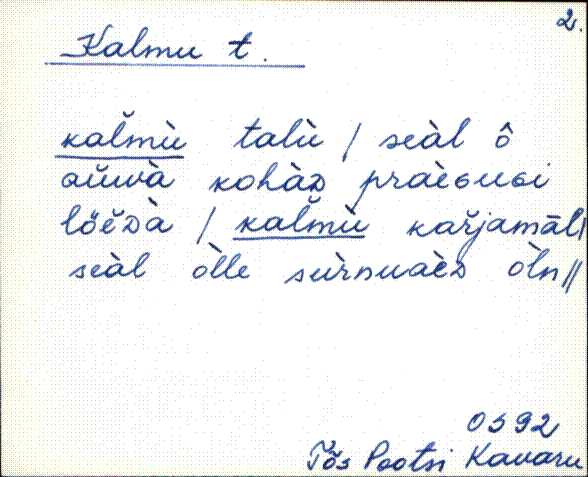 2.
Kalmu t.
kal̆mù talù / seàl ô
aŭwà kohàᴅ pràeɢuɢi
löĕᴅà / kal̆mù kar̆jamāl/
seàl òlle sùrnuaèᴅ òln //
0392
Tõs Pootsi Kavaru